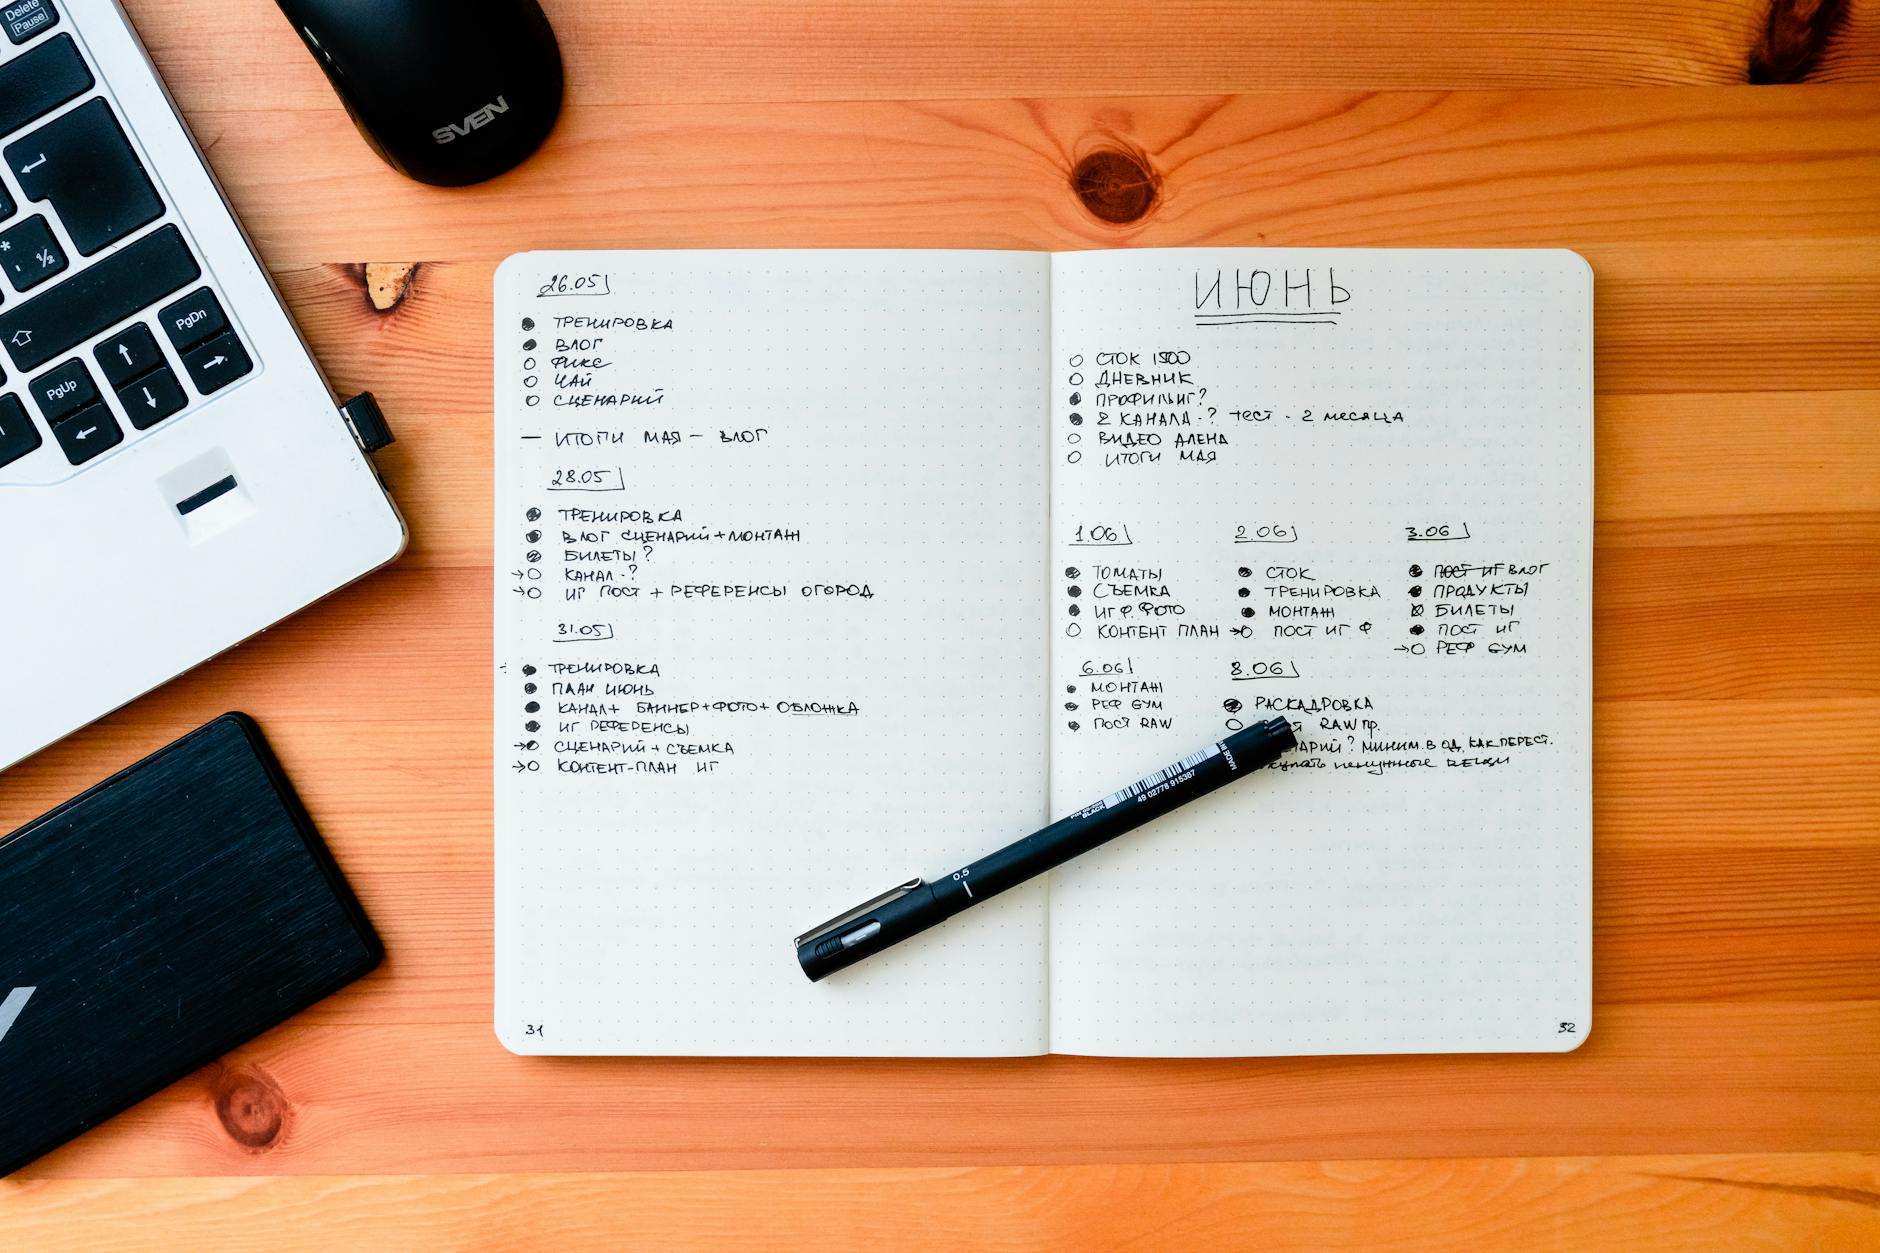 Delete
Pause
* 1/2
PgDn
PgUp
SVEN
26.05
ТРЕНИРОВКА
ВЛОГ
ФИКС
ЧАЙ
СЦЕНАРИЙ
— ИТОГИ МАЯ — ВЛОГ
28.05
ТРЕНИРОВКА
ВЛОГ СЦЕНАРИЙ+МОНТАЖ
БИЛЕТЫ?
→ КАНАЛ-?
→ ИГ ПОСТ + РЕФЕРЕНСЫ ОГОРОД
31.05
ТРЕНИРОВКА
ПЛАН ИЮНЬ
КАНАЛ+ БАННЕР+ФОТО+ ОБЛОЖКА
ИГ РЕФЕРЕНСЫ
→ СЦЕНАРИЙ + СЪЕМКА
→ КОНТЕНТ-ПЛАН ИГ
31
ИЮНЬ
СТОК 1500
ДНЕВНИК
ПРОФИЛЬ ИГ?
2 КАНАЛА-? ТЕСТ - 2 МЕСЯЦА
ВИДЕО АЛЕНА
ИТОГИ МАЯ
1.06
ТОМАТЫ
СЪЕМКА
ИГ Ф. ФОТО
КОНТЕНТ ПЛАН
2.06
СТОК
ТРЕНИРОВКА
МОНТАЖ
→ ПОСТ ИГ Ф
3.06
ПОСТ ИГ ВЛОГ
ПРОДУКТЫ
БИЛЕТЫ
ПОСТ ИГ
→ РЕФ GYM
6.06
МОНТАЖ
РЕФ GYM
ПОСТ RAW
8.06
РАСКАДРОВКА
RAW ПР.
МИНИМ. В ОД. КАК ПЕРЕСТ.
ненужные вещи
32
MADE IN
49 02778 915387
BLACK
0.5